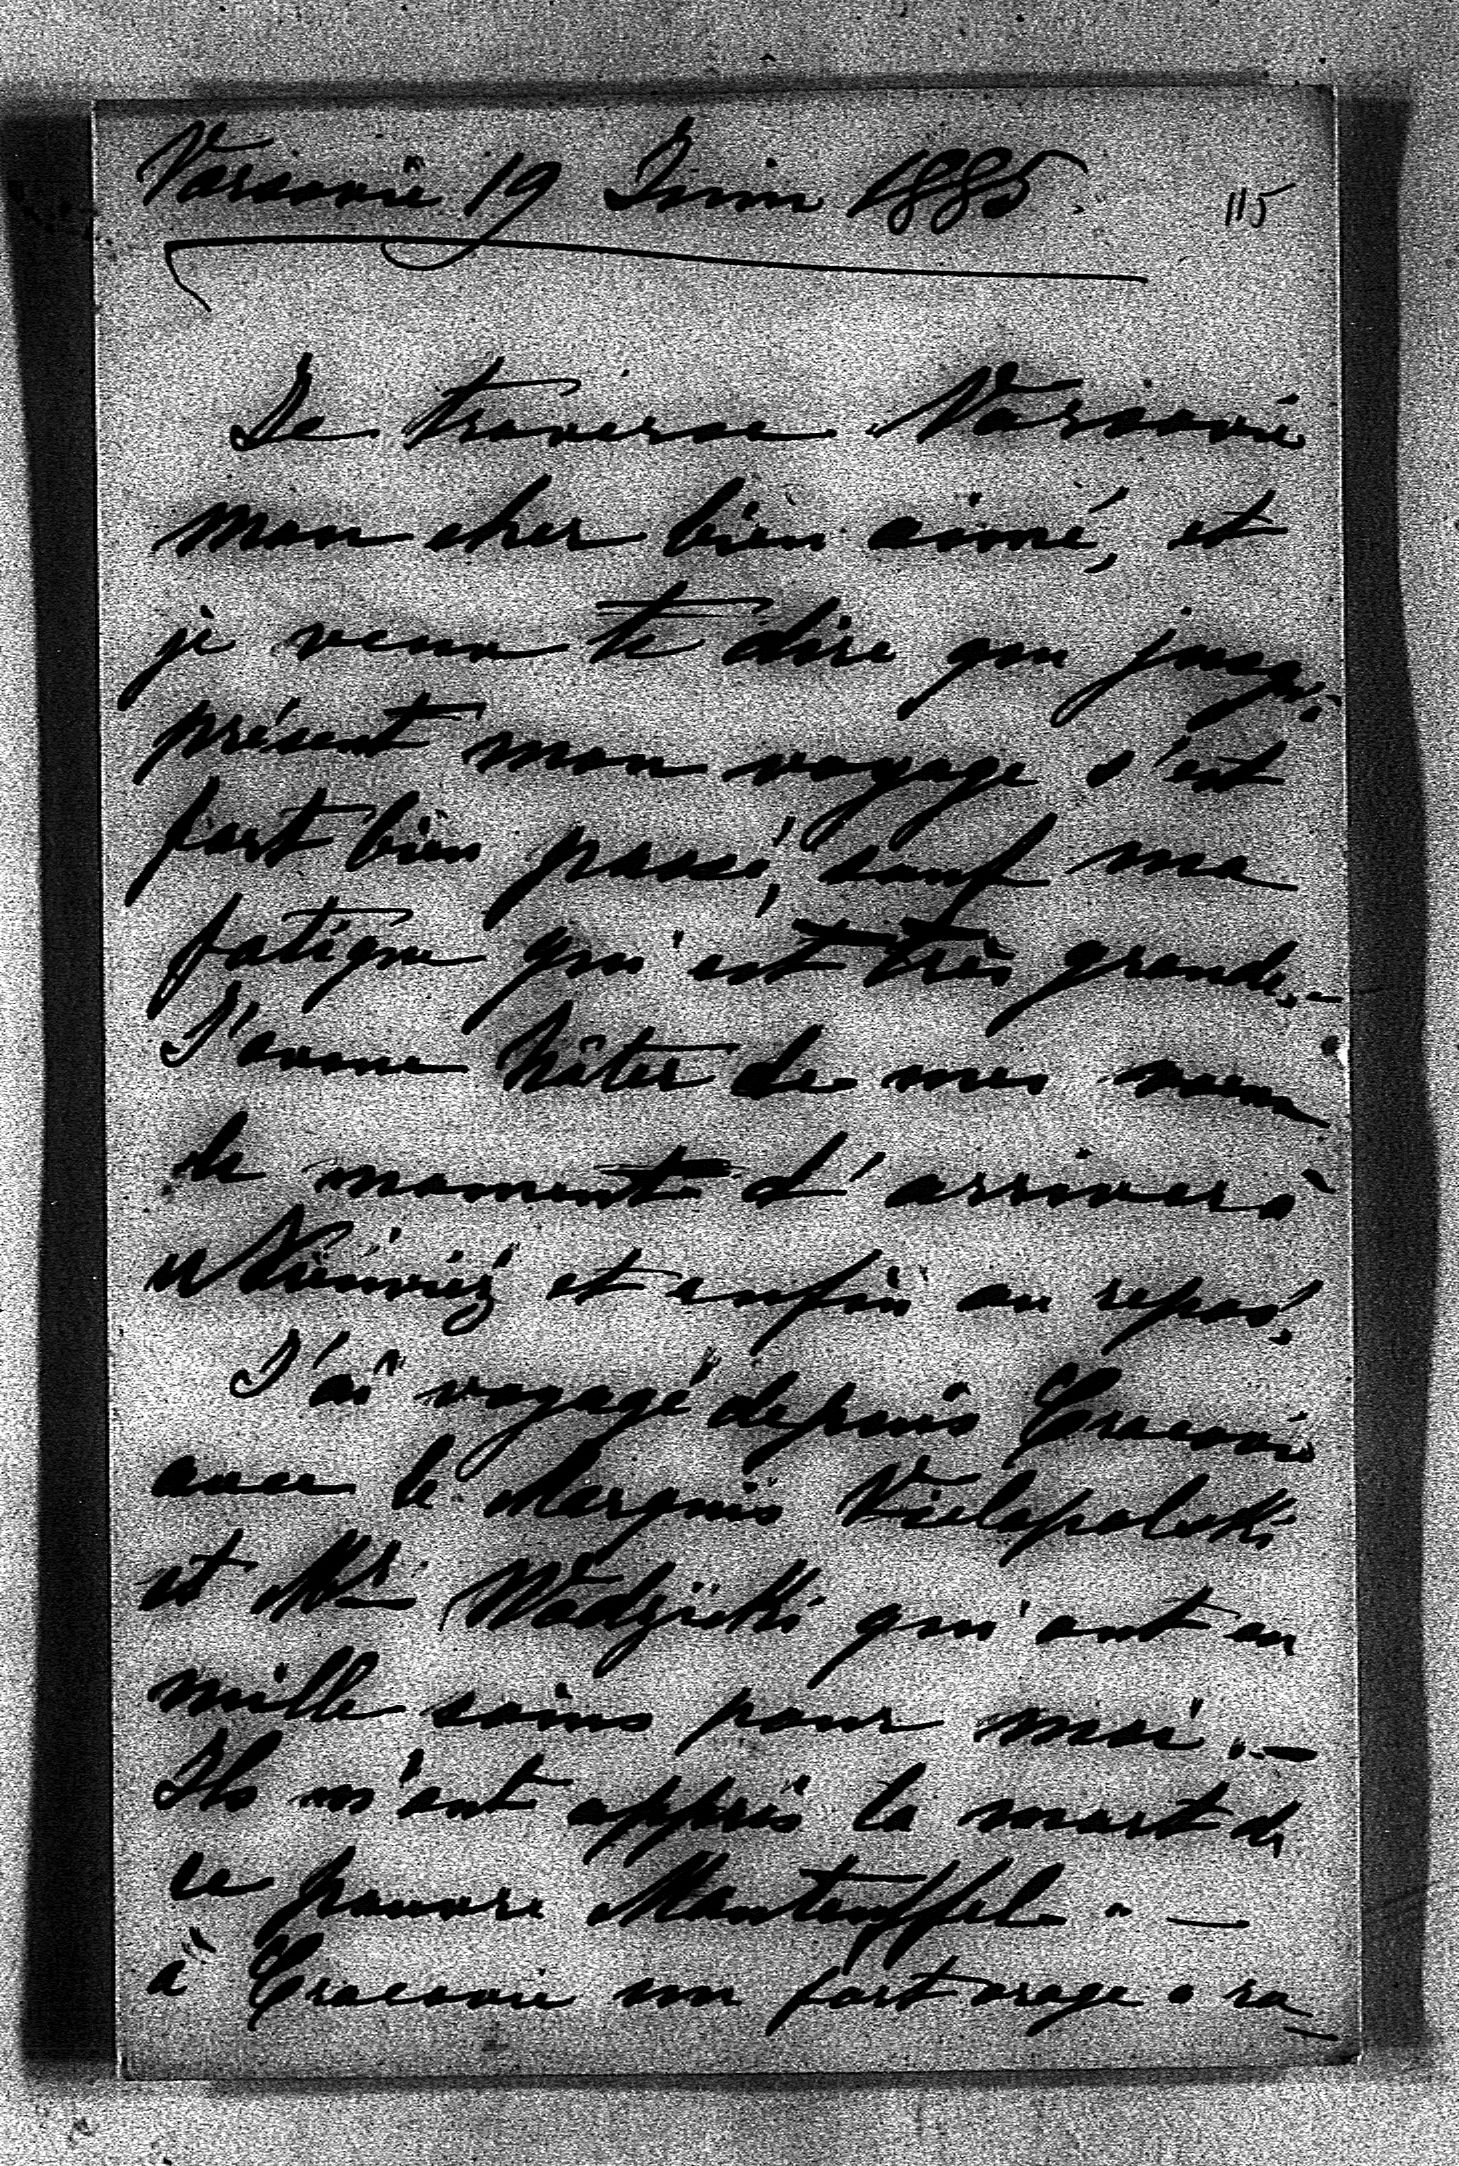 Varsovie 19 Juin 1885.
115
Je traverse Varsovie
mon cher bien aimé, et
je veux te dire que jusqu'à
présent mon voyage s'est
fort bien passé, sauf ma
fatigue qui est très grande. —
J'avoue hâter de mes voeux
le moment d'arriver à
et enfin au repos.
J'ai voyagé depuis Cracovie
avec le Marquis Vielopolski
et Mr. Wodziski qui ont eu
mille soins pour moi. —
Ils m'ont appris la mort de
ce pauvre Manteuffel. —
à Cracovie un fort orage a ra-